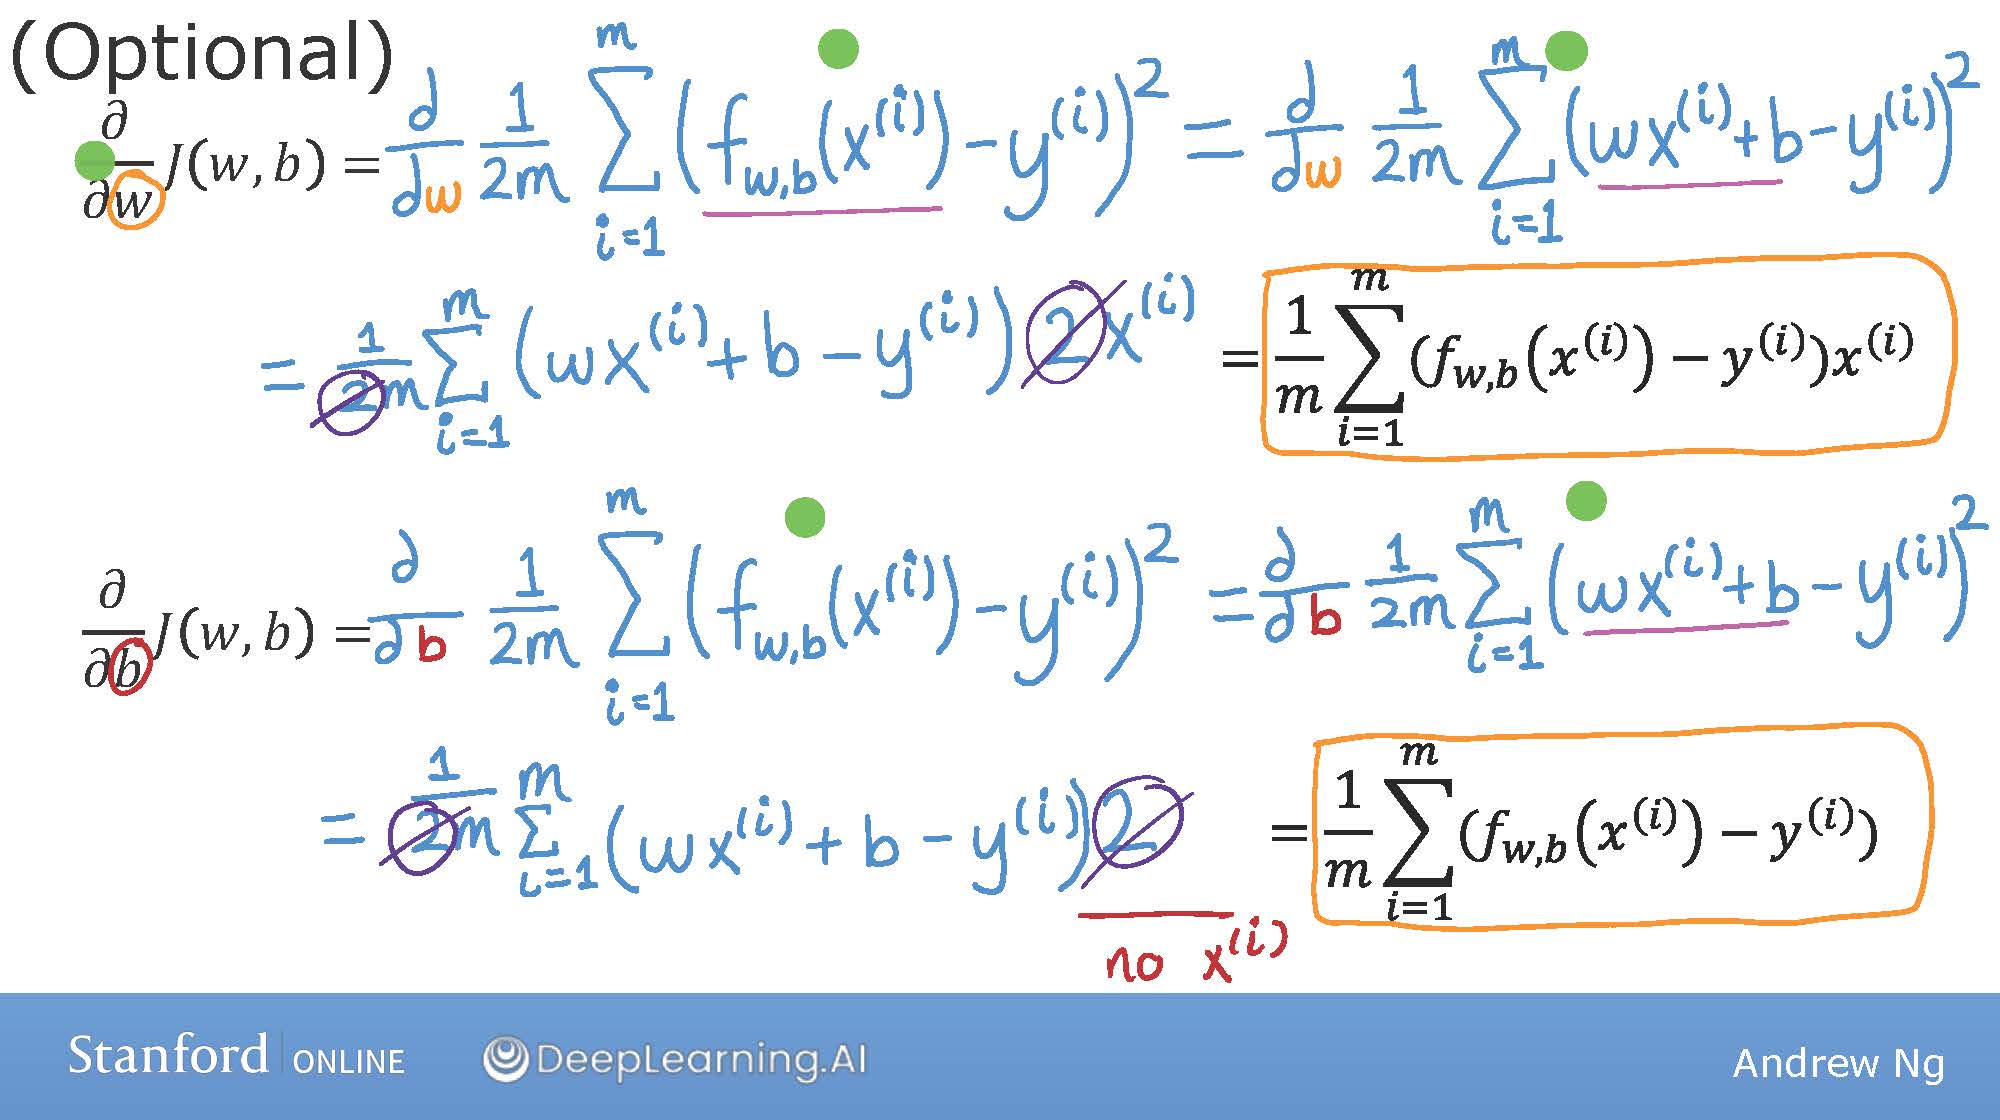 (Optional)
∂/∂w J(w, b) = d/dw 1/2m ∑_{i=1}^{m} (f_{w,b}(x^{(i)}) − y^{(i)})² = d/dw 1/2m ∑_{i=1}^{m} (wx^{(i)} + b − y^{(i)})²
= 1/2m ∑_{i=1}^{m} (wx^{(i)} + b − y^{(i)}) 2x^{(i)} = 1/m ∑_{i=1}^{m} (f_{w,b}(x^{(i)}) − y^{(i)})x^{(i)}
∂/∂b J(w, b) = ∂/∂b 1/2m ∑_{i=1}^{m} (f_{w,b}(x^{(i)}) − y^{(i)})² = ∂/∂b 1/2m ∑_{i=1}^{m} (wx^{(i)} + b − y^{(i)})²
= 1/2m ∑_{i=1}^{m} (wx^{(i)} + b − y^{(i)}) 2 = 1/m ∑_{i=1}^{m} (f_{w,b}(x^{(i)}) − y^{(i)})
no x^{(i)}
Stanford | ONLINE DeepLearning.AI Andrew Ng